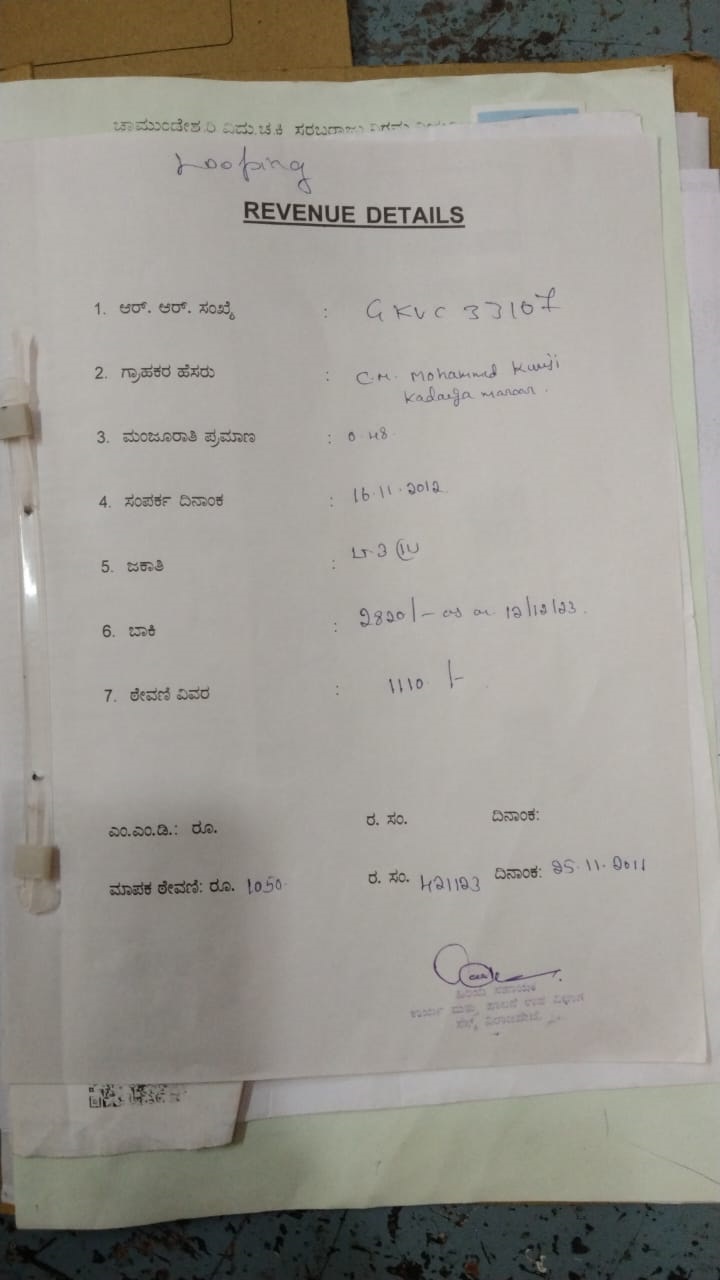 ಚಾಮುಂಡೇಶ್ವರಿ ವಿದ್ಯುಚ್ಛಕ್ತಿ ಸರಬರಾಜು ನಿಗಮ
Looping
REVENUE DETAILS
1. ಆರ್. ಆರ್. ಸಂಖ್ಯೆ : GKVC 33107
2. ಗ್ರಾಹಕರ ಹೆಸರು : C.M. Mohammed Kunji
3. ಮಂಜೂರಾತಿ ಪ್ರಮಾಣ : 0.48
4. ಸಂಪರ್ಕ ದಿನಾಂಕ : 16.11.2012
5. ಜಕಾತಿ : LT-3
6. ಬಾಕಿ : 2820/- as on 12/12/23.
7. ಠೇವಣಿ ವಿವರ : 1110 /-
ಎಂ.ಎಂ.ಡಿ.: ರೂ. ರ. ಸಂ. ದಿನಾಂಕ:
ಮಾಪಕ ಠೇವಣಿ: ರೂ. 1050 ರ. ಸಂ. 421123 ದಿನಾಂಕ: 25.11.2011
ಹಿರಿಯ ಸಹಾಯಕ
ಕಾರ್ಯ ಮತ್ತು ಪಾಲನೆ ಉಪ ವಿಭಾಗ